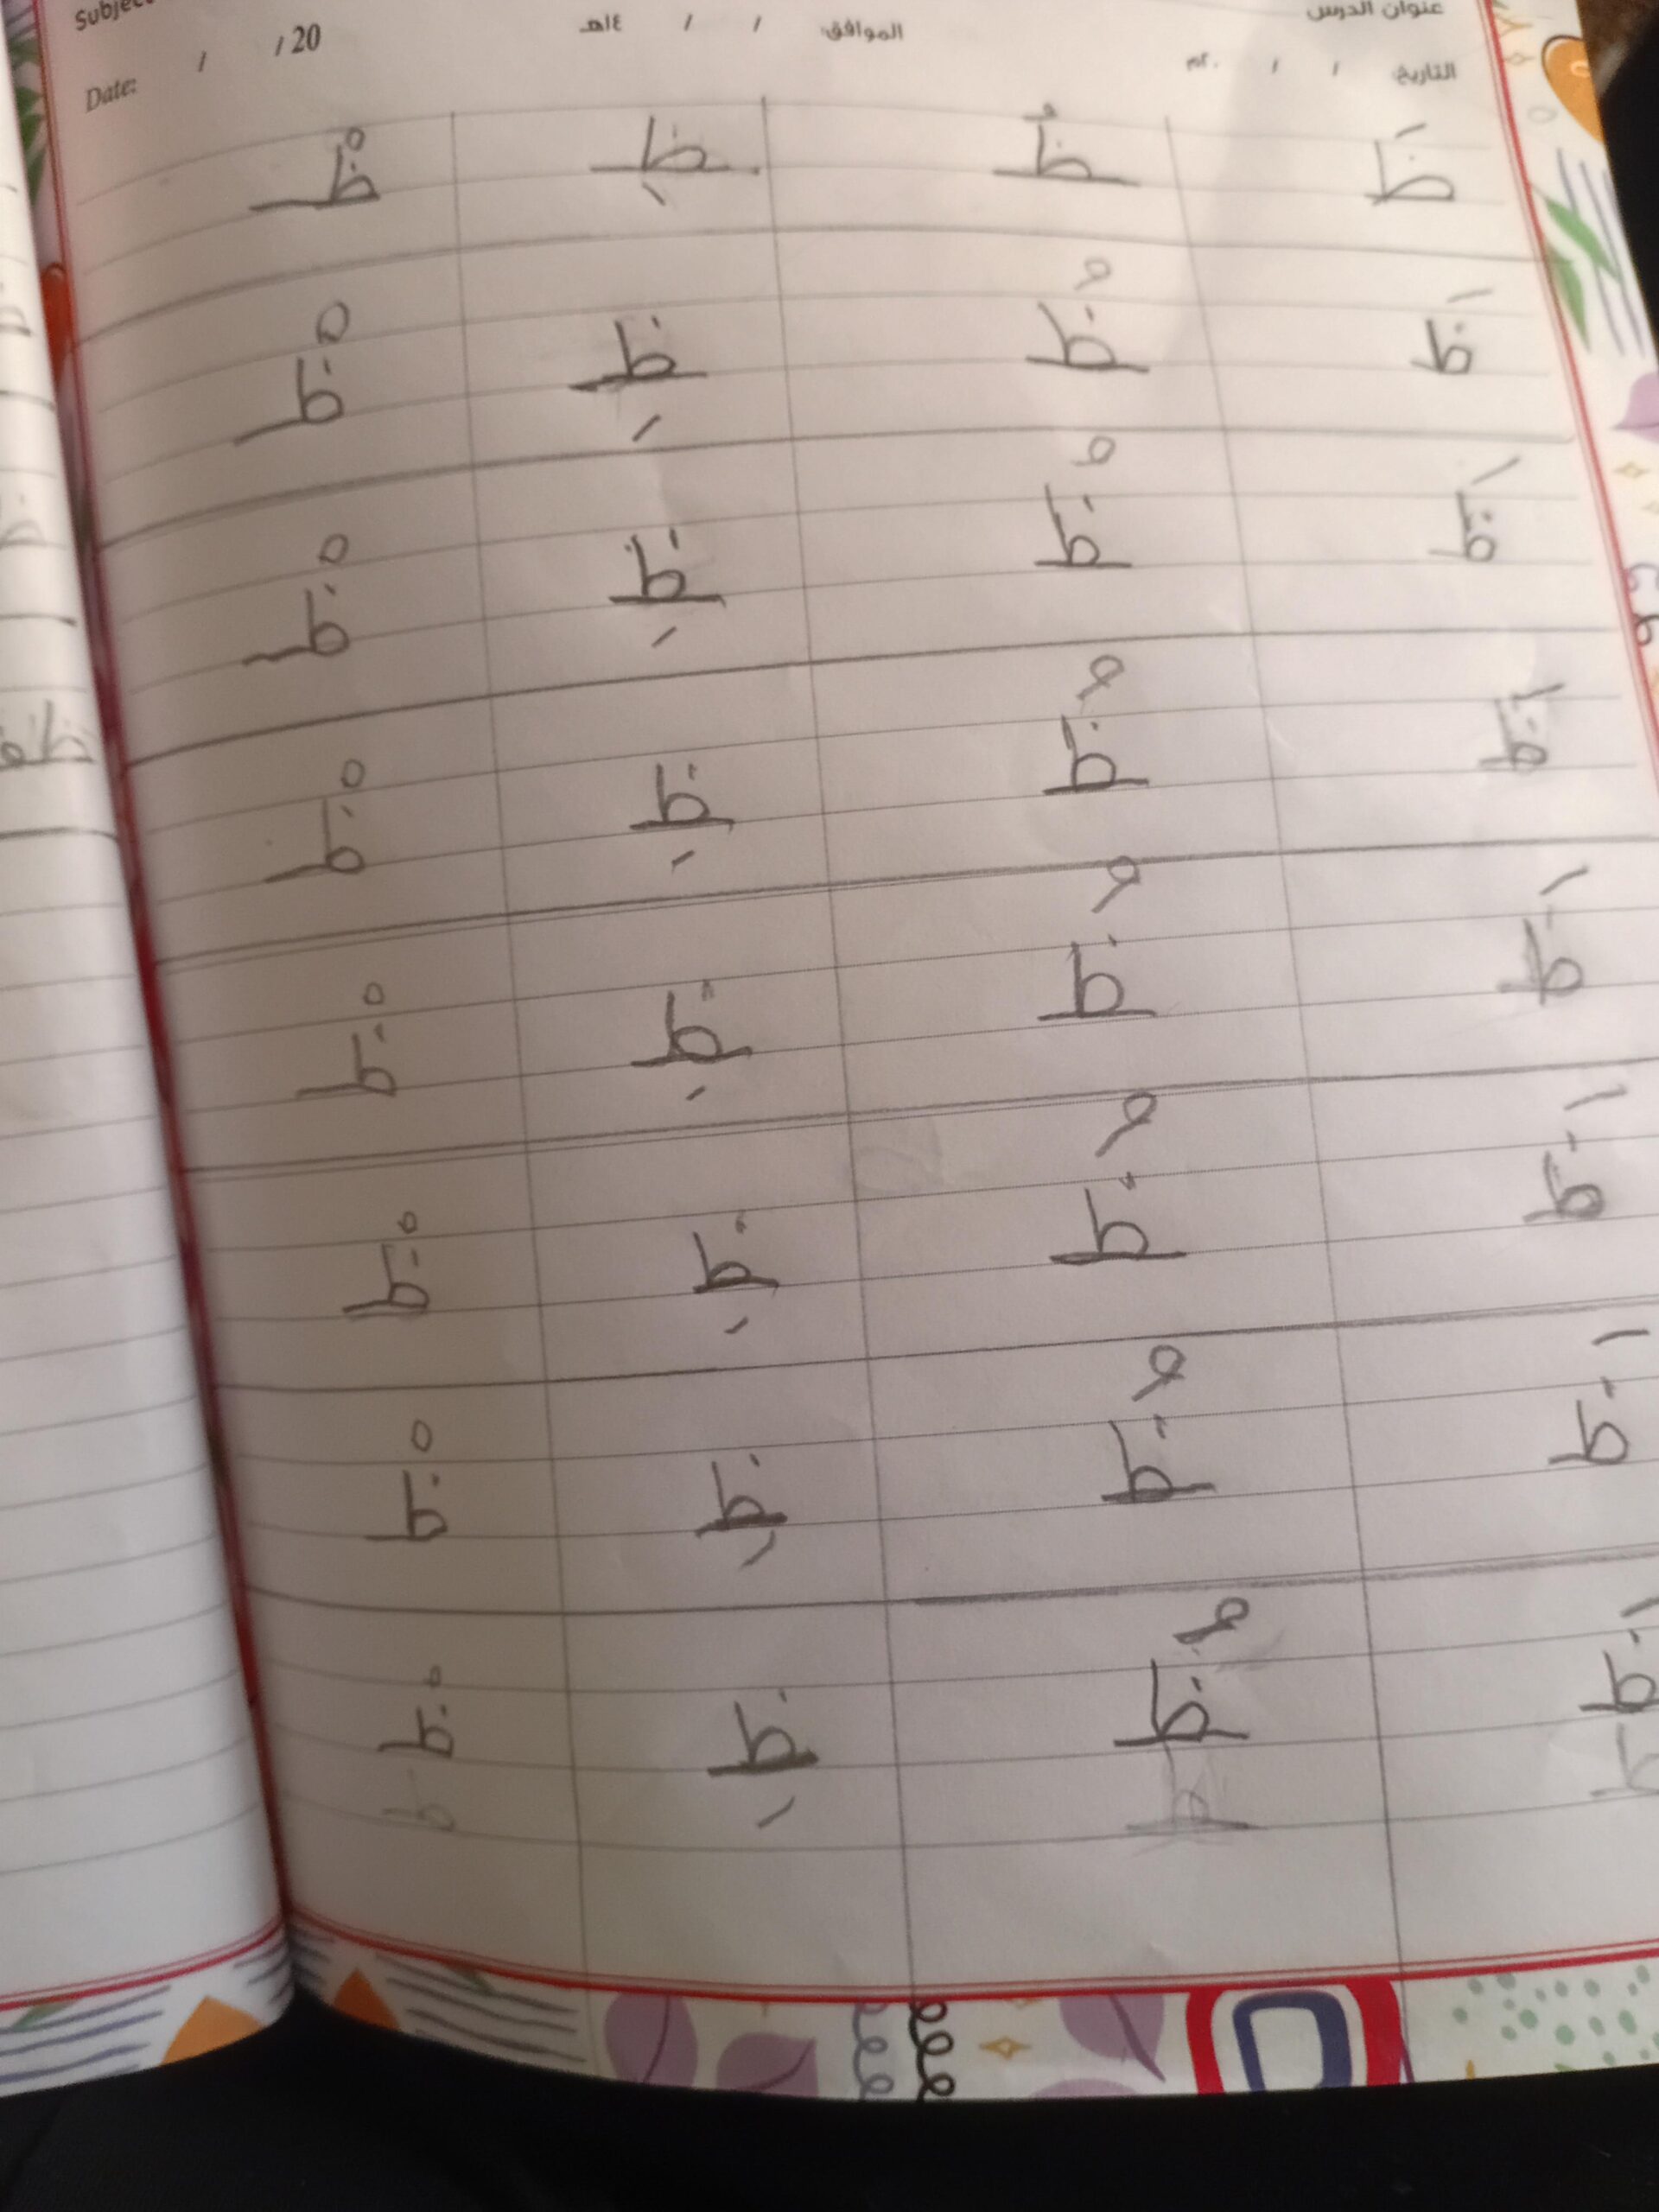 عنوان الدرس
التاريخ / / ٢٠م الموافق: / / ١٤هـ
Date: / / 20
ظَ ظُ ظِ ظْ
ظَ ظُ ظِ ظْ
ظَ ظُ ظِ ظْ
ظَ ظُ ظِ ظْ
ظَ ظُ ظِ ظْ
ظَ ظُ ظِ ظْ
ظَ ظُ ظِ ظْ
ظَ ظُ ظِ ظْ